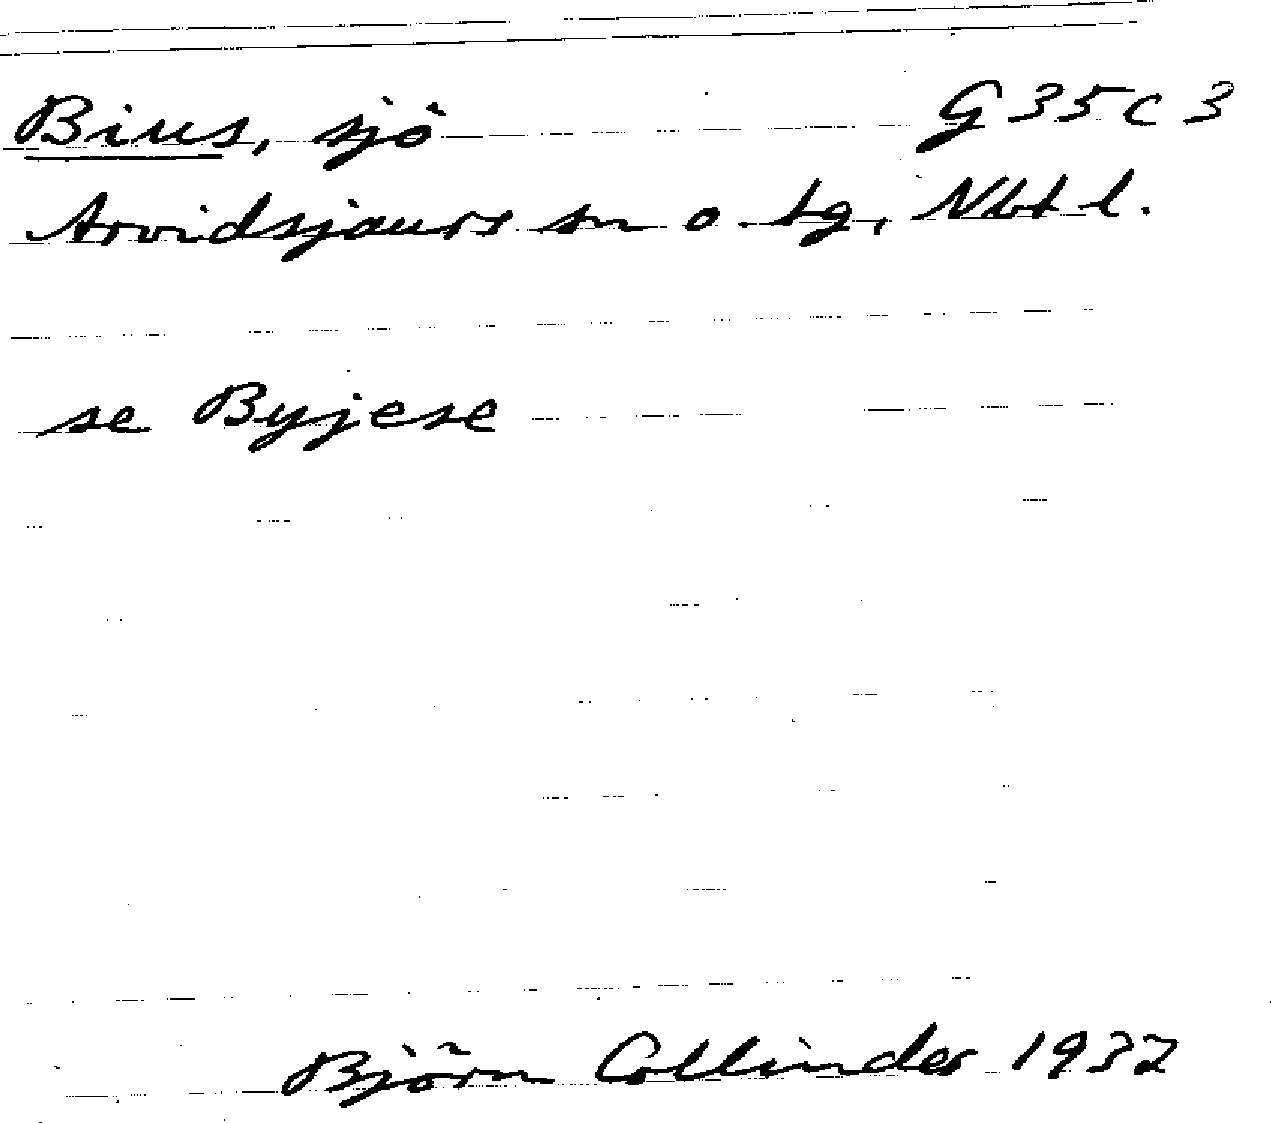 Bius, sjö G 35 C 3
Arvidsjaurs sn o. tg, Nbt l.
se Byjese
Björn Collinder 1932